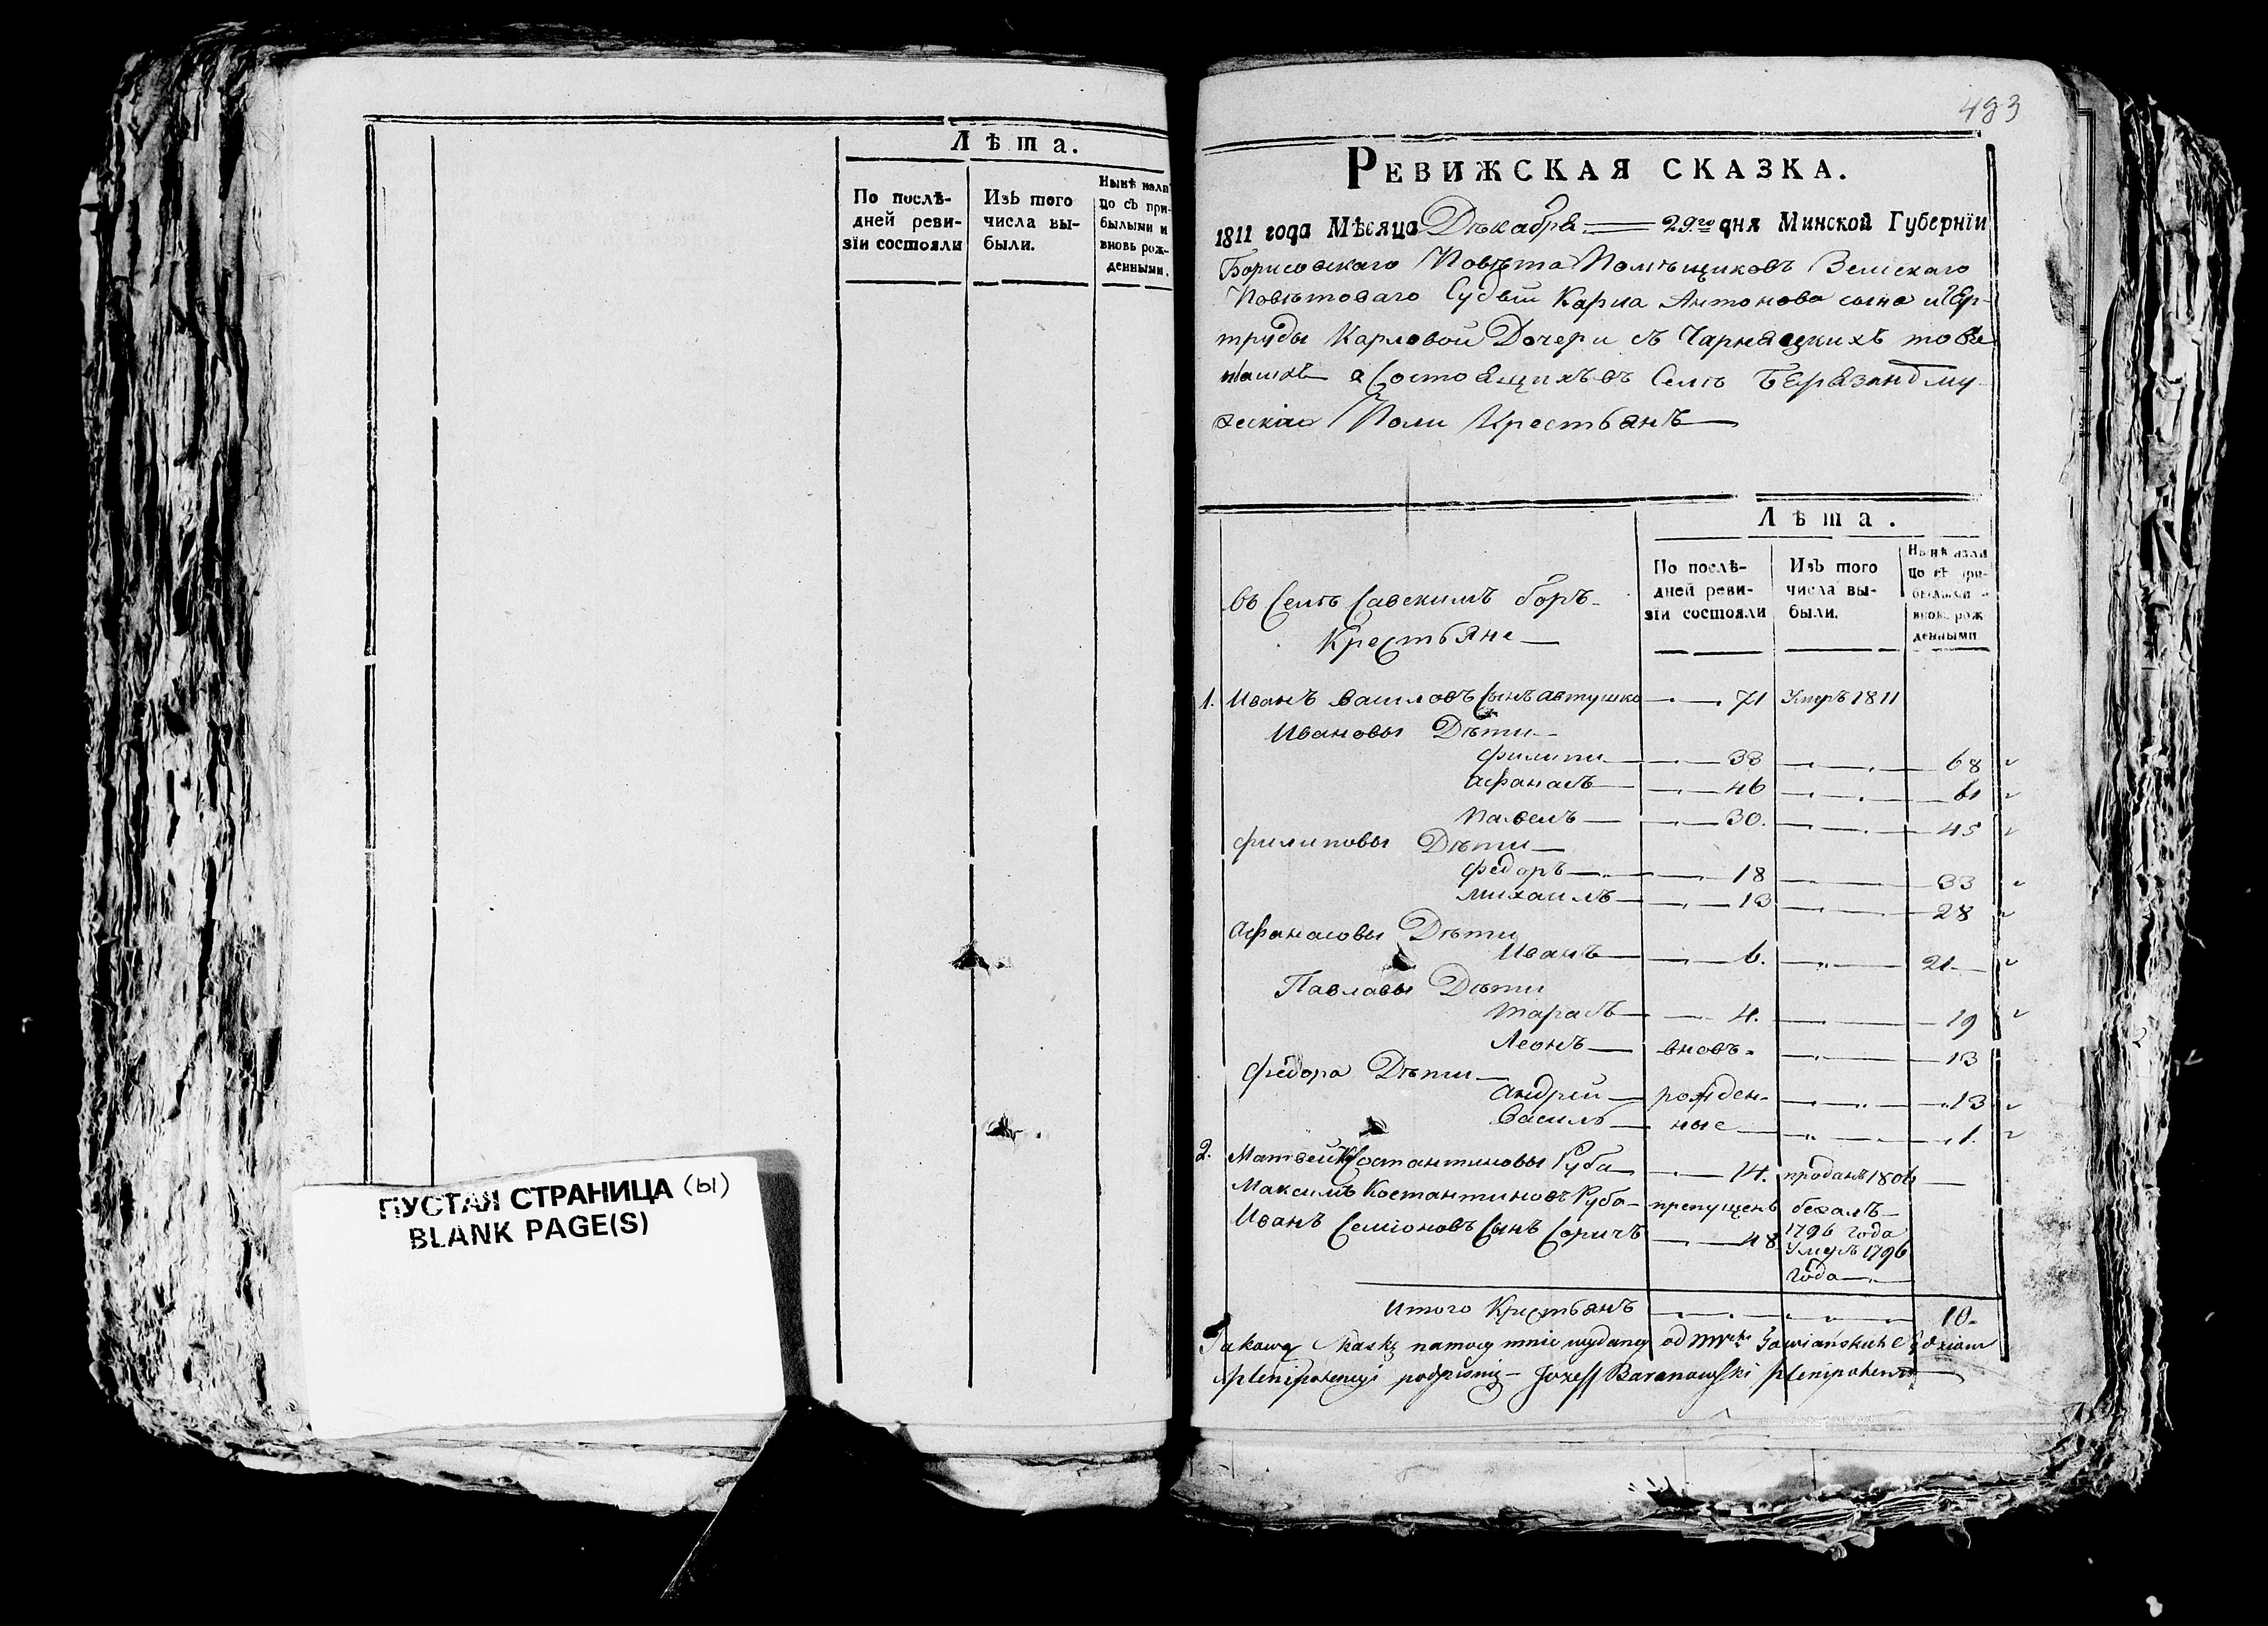 Лѣта.
По послѣ-
дней реви-
зіи состояли
Изь того
числа вы-
были.
Нынѣ нали
цо сѣ при-
былыми и
вновь рож-
денными.
ПУСТАЯ СТРАНИЦА (ы)
BLANK PAGE(S)
483
РЕВИЖСКАЯ СКАЗКА.
1811 года Мѣсяца Дѣкабря 29го дня Минской Губерніи
Борисовскаго Повѣта Помѣщиковъ Земскаго
Повѣтоваго Судьи Карла Антонова сына и Гер-
труды Карловой Дочери съ Чарнацкихъ
а Состоящихъ въ Селѣ му-
жескаго Поли Крестьянъ
Лѣта.
По послѣ-
дней реви-
зіи состояли
Изь того
числа вы-
были.
Нынѣ нали
цо сѣ при-
былыми и
вновь рож
денными
въ Селѣ Савскимъ боръ
Крестьяне
1. Иванъ Василовъ Сынъ Автушко 71 Умеръ 1811
Ивановы Дѣти
Филипи 33 68
Афанасъ 46 61
Павелъ 30. 45
Филиповы Дѣти
Федоръ 18 33
Михаилъ 13 28
Афанасовы Дѣти
Иванъ 6. 21
Павлавы Дѣти
Тарасъ 4. 19
Леонъ вновь 13
Федора Дѣти
Андрей рожден- 13
Василь ные 1.
2. Матвей Костантиновы Руба 14. проданъ 1806
Максимъ Костантиновъ Руба препущенъ бежалъ
1796 года
Иванъ Семіоновъ Сынъ Соричъ 48 Умеръ 1796
года
Итого Крестьянъ 10.
Takową Skaskę namocy mnie wydaney od
plenipotencyi podpisuię - Jozeff Baranowski plenipotent